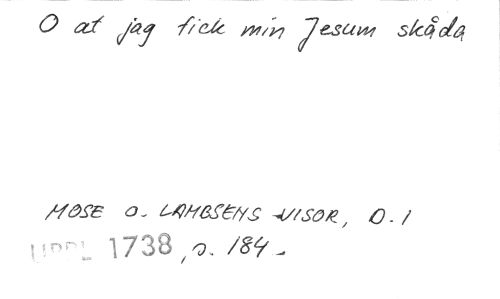 O at jag fick min Jesum skåda
MOSE o. LAMBSENS VISOR, D. 1
UPPL 1738, s. 184.